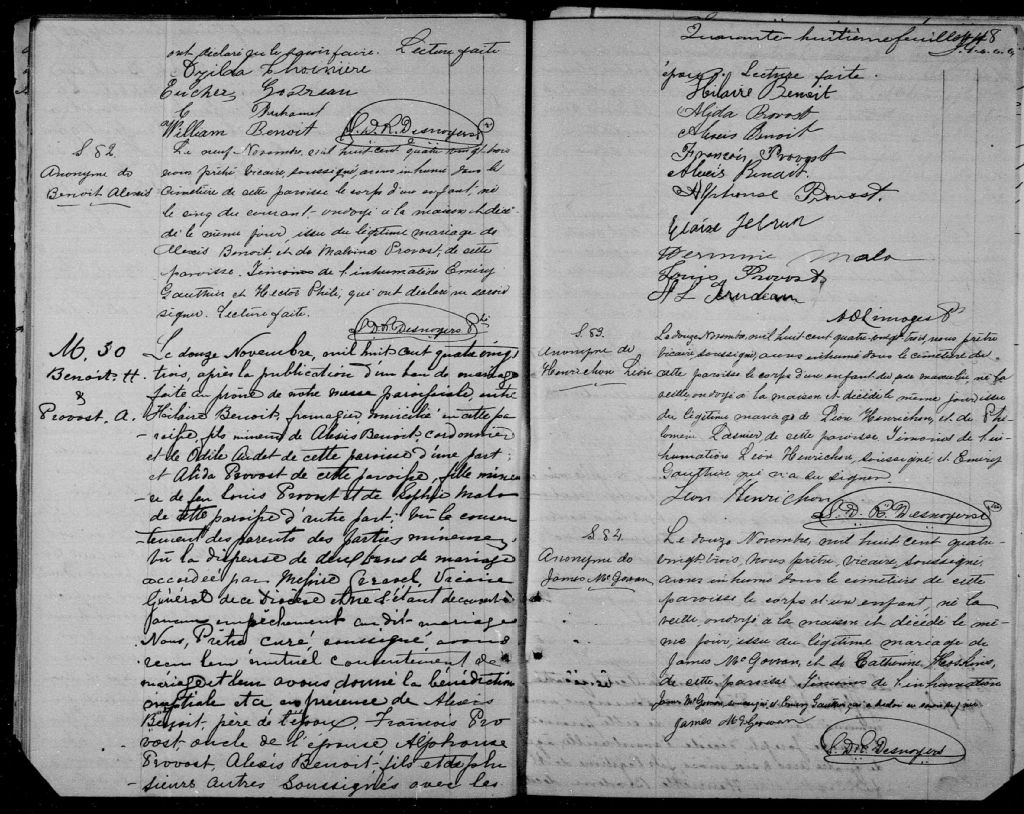 ont déclaré ne le savoir faire. Lecture faite
William Benoit J. D. R. Desnoyers Ptre
S 82.
Anonyme de
Benoit Alexis
Le neuf Novembre, mil huit cent quatre vingt trois
nous prêtre vicaire, soussigné, avons inhumé dans le
cimetière de cette paroisse le corps d'un enfant, né
le cinq du courant ondoyé à la maison et décé-
dé le même jour, issu du légitime mariage de
Alexis Benoit et de Malvina Provost, de cette
paroisse. Témoins de l'inhumation Emery
Gauthier et Hector Phili, qui ont déclaré ne savoir
signer. Lecture faite.
J. D. R. Desnoyers Ptre
M. 30
Benoit. H.
&
Provost. A.
Le douze Novembre, mil huit cent quatre vingt
trois, après la publication d'un ban de mariage
faite au prône de notre messe paroissiale, entre
Hilaire Benoit, fromagier, domicilié en cette pa-
roisse, fils mineur de Alexis Benoit, cordonnier
et de Odile Audet de cette paroisse d'une part;
et Alida Provost de cette paroisse, fille mineu-
re de feu Louis Provost et de Sophie Malo
de cette paroisse d'autre part; vu le consen-
tement des parents des parties mineures,
vu la dispense de deux bans de mariage
accordée par Messire Gravel, Vicaire
Général de ce Diocèse et ne s'étant découvert
aucun empêchement au dit mariage
Nous, Prêtre curé soussigné, avons
reçu leur mutuel consentement de
mariage et leur avons donné la bénédiction
nuptiale et ce en présence de Alexis
Benoit, père de l'époux, Francois Pro-
vost, oncle de l'épouse, Alphonse
Provost, Alexis Benoit, fils et de plu-
sieurs autres soussignés avec les
Quarante-huitième feuillet 48
époux. Lecture faite.
Hilaire Benoit
Alida Provost
Alexis Benoit
François Provost
Alexis Benoit.
Alphonse Provost.
Hermine Malo
Louis Provost
A. Limoges Ptre
S. 83.
Anonyme de
Henrichon Léon
Le douze Novembre, mil huit cent quatre vingt trois, nous prêtre
vicaire soussigné, avons inhumé dans le cimetière de
cette paroisse le corps d'un enfant du sexe masculin, né la
veille, ondoyé à la maison et décédé le même jour issu
du légitime mariage de Léon Henrichon, et de Phi-
lomène de cette paroisse. Témoins de l'in-
humation Léon Henrichon, soussigné, et Emery
Gauthier qui n'a su signer.
Leon Henrichon
J. D. R. Desnoyers Ptre
S 84.
Anonyme de
James McGovan
Le douze Novembre, mil huit cent quatre-
vingt trois, Nous prêtre, vicaire, soussigné,
avons inhumé dans le cimetière de cette
paroisse le corps d'un enfant, né la
veille, ondoyé à la maison et décédé le mê-
me jour, issu du légitime mariage de
James McGovan, et de Catherine Hopkins,
de cette paroisse. Témoins de l'inhumation
James McGovan, soussigné et Emery Gauthier qui a déclaré ne savoir signer
James McGowan
J. D. R. Desnoyers